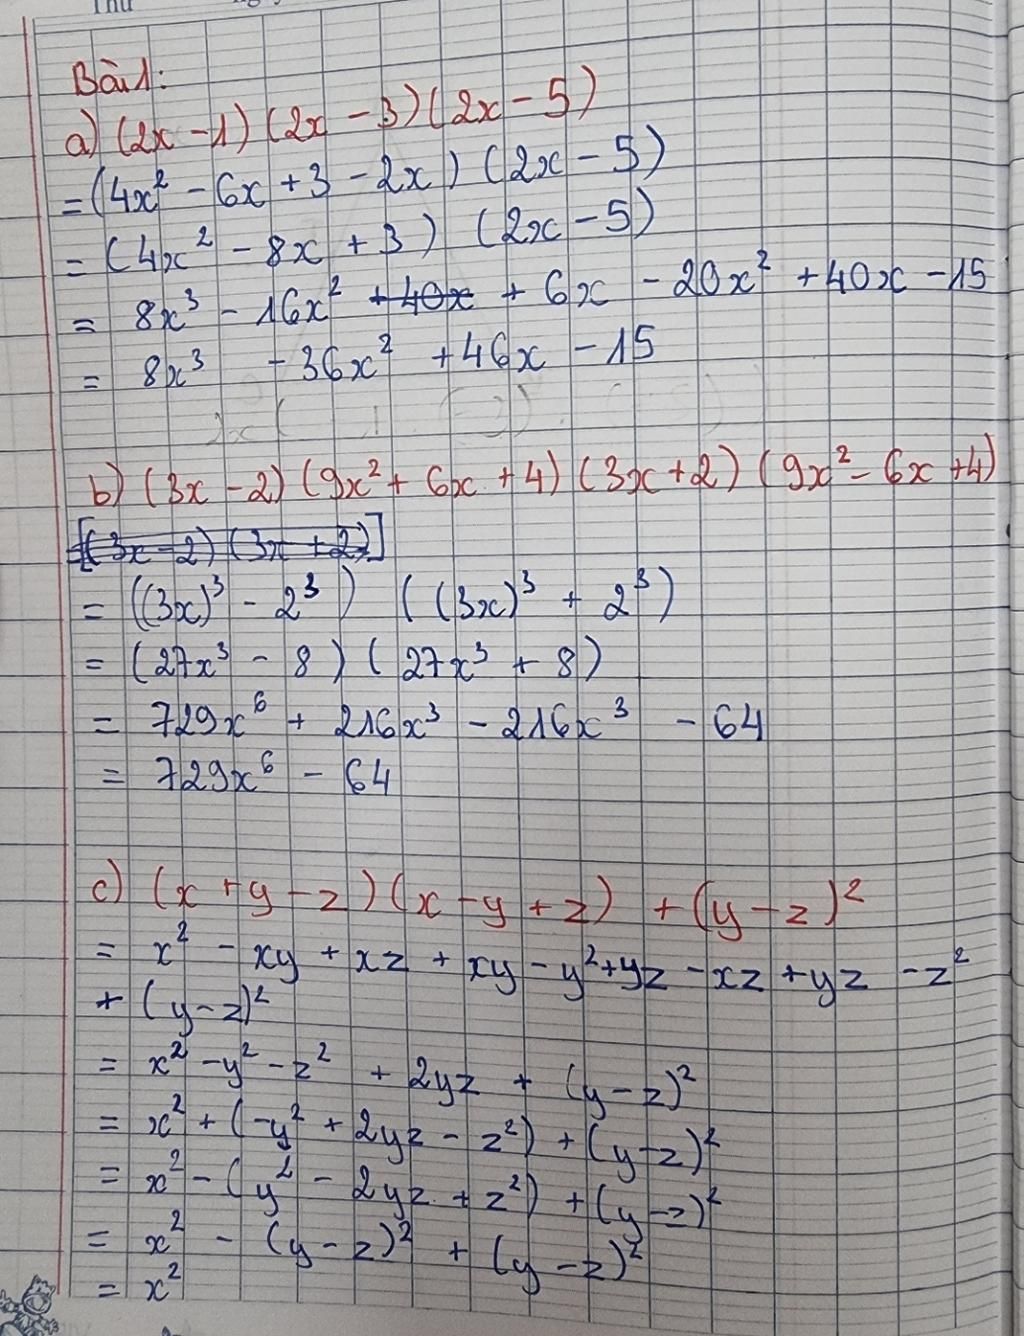 Thứ
Bài 1:
a) (2x - 1) (2x - 3) (2x - 5)
= (4x² - 6x + 3 - 2x) (2x - 5)
= (4x² - 8x + 3) (2x - 5)
= 8x³ - 16x² + 40x + 6x - 20x² + 40x - 15
= 8x³ - 36x² + 46x - 15
b) (3x - 2) (9x² + 6x + 4) (3x + 2) (9x² - 6x + 4)
[(3x - 2) (3x + 2)]
= ((3x)³ - 2³) ((3x)³ + 2³)
= (27x³ - 8) (27x³ + 8)
= 729x⁶ + 216x³ - 216x³ - 64
= 729x⁶ - 64
c) (x + y - z) (x - y + z) + (y - z)²
= x² - xy + xz + xy - y² + yz - xz + yz - z²
+ (y - z)²
= x² - y² - z² + 2yz + (y - z)²
= x² + (-y² + 2yz - z²) + (y - z)²
= x² - (y² - 2yz + z²) + (y - z)²
= x² - (y - z)² + (y - z)²
= x²